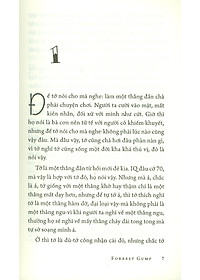 1
Để tớ nói cho mà nghe: làm một thằng đần chả
phải chuyện chơi. Người ta cười vào mặt, mất
kiên nhẫn, đối xử với mình như cứt. Giờ thì
họ nói là bà con nên tử tế với người có khiếm khuyết,
nhưng để tớ nói cho mà nghe không phải lúc nào cũng
vậy đâu. Mà dầu vậy, tớ cũng chả có gì phàn nàn,
vì tớ nghĩ tớ cũng sống một đời kha khá thú vị, đó là
nói vậy.
Tớ là một thằng đần từ hồi mới đẻ kia. IQ đâu cỡ 70,
mà vậy là hợp với tớ đó, họ nói vậy. Nhưng mà, chắc
là á, tớ giống với một thằng khờ hay thậm chí là một
thằng mất dạy hơn, nhưng riêng tớ thì tớ thích nghĩ tớ
là một thằng hâm dở, đại loại vậy-mà không phải một
thằng ngu-vì khi người ta nghĩ về một thằng ngu,
thường họ sẽ nghĩ về mấy thằng chảy dãi tong tong mà
tự sờ soạng mình á.
Ờ thì tớ là đù-tớ công nhận cái đó, nhưng chắc tớ
FORREST GUMP 7